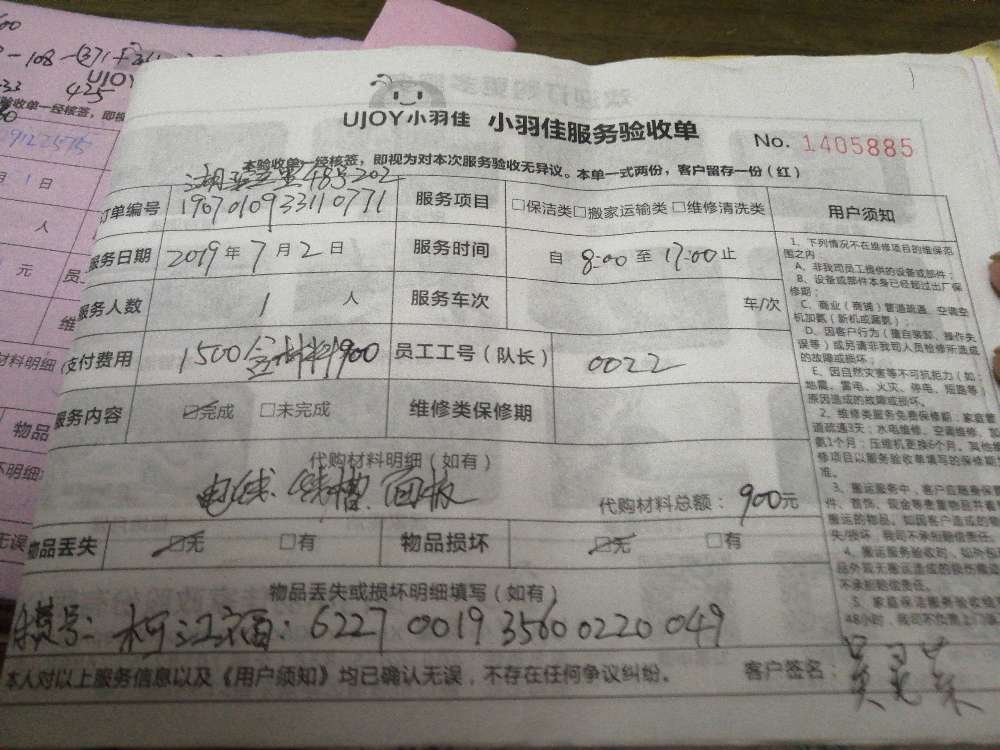 108
425
UJOY小羽佳 小羽佳服务验收单
No. 1405885
本验收单一经核签，即视为对本次服务验收无异议。本单一式两份，客户留存一份（红）
48号202
订单编号 1907010933110771 服务项目 □保洁类□搬家运输类□维修清洗类 用户须知
服务日期 2019年7月2日 服务时间 自 8:00 至 17:00 止
服务人数 1 人 服务车次 车/次
支付费用 1500含材料900 员工工号（队长） 0022
服务内容 ☑完成 □未完成 维修类保修期
代购材料明细（如有）
电线、线槽、面板 代购材料总额：900元
物品丢失 ☑无 □有 物品损坏 ☑无 □有
物品丢失或损坏明细填写（如有）
柯江福：6227 0019 3560 0220 049
本人对以上服务信息以及《用户须知》均已确认无误，不存在任何争议纠纷。 客户签名：
1、下列情况不在维修项目的维保范
围之内
A、非我司员工提供的设备或部件；
B、设备或部件本身已经超过出厂保
修期；
C、商业（商铺）管道疏通、空调主
机加氨（新机或漏氨）；
D、因客户行为（擅自装卸、操作失
误等）或另请非我司人员检修所造成
的故障或损坏；
E、因自然灾害等不可抗拒力（如：
地震、雷电、火灾、停电、短路等）
原因造成的故障或损坏。
2、维修类服务免费保修期，家庭管
道疏通3天；水电维修、空调维修、加
氨1个月；压缩机更换6个月。其他维
修项目以服务验收单填写的保修期为
准。
3、搬运服务中，客户应随身保管
件、首饰、现金等贵重物品并看
搬运的物品。如因客户造成的
失/损坏，我司不承担赔偿责任。
4、搬运服务验收时，如外包
品外观无搬运造成的损伤痕迹
不承担赔偿责任。
5、家庭保洁服务验收
48小时，我司不负责上门